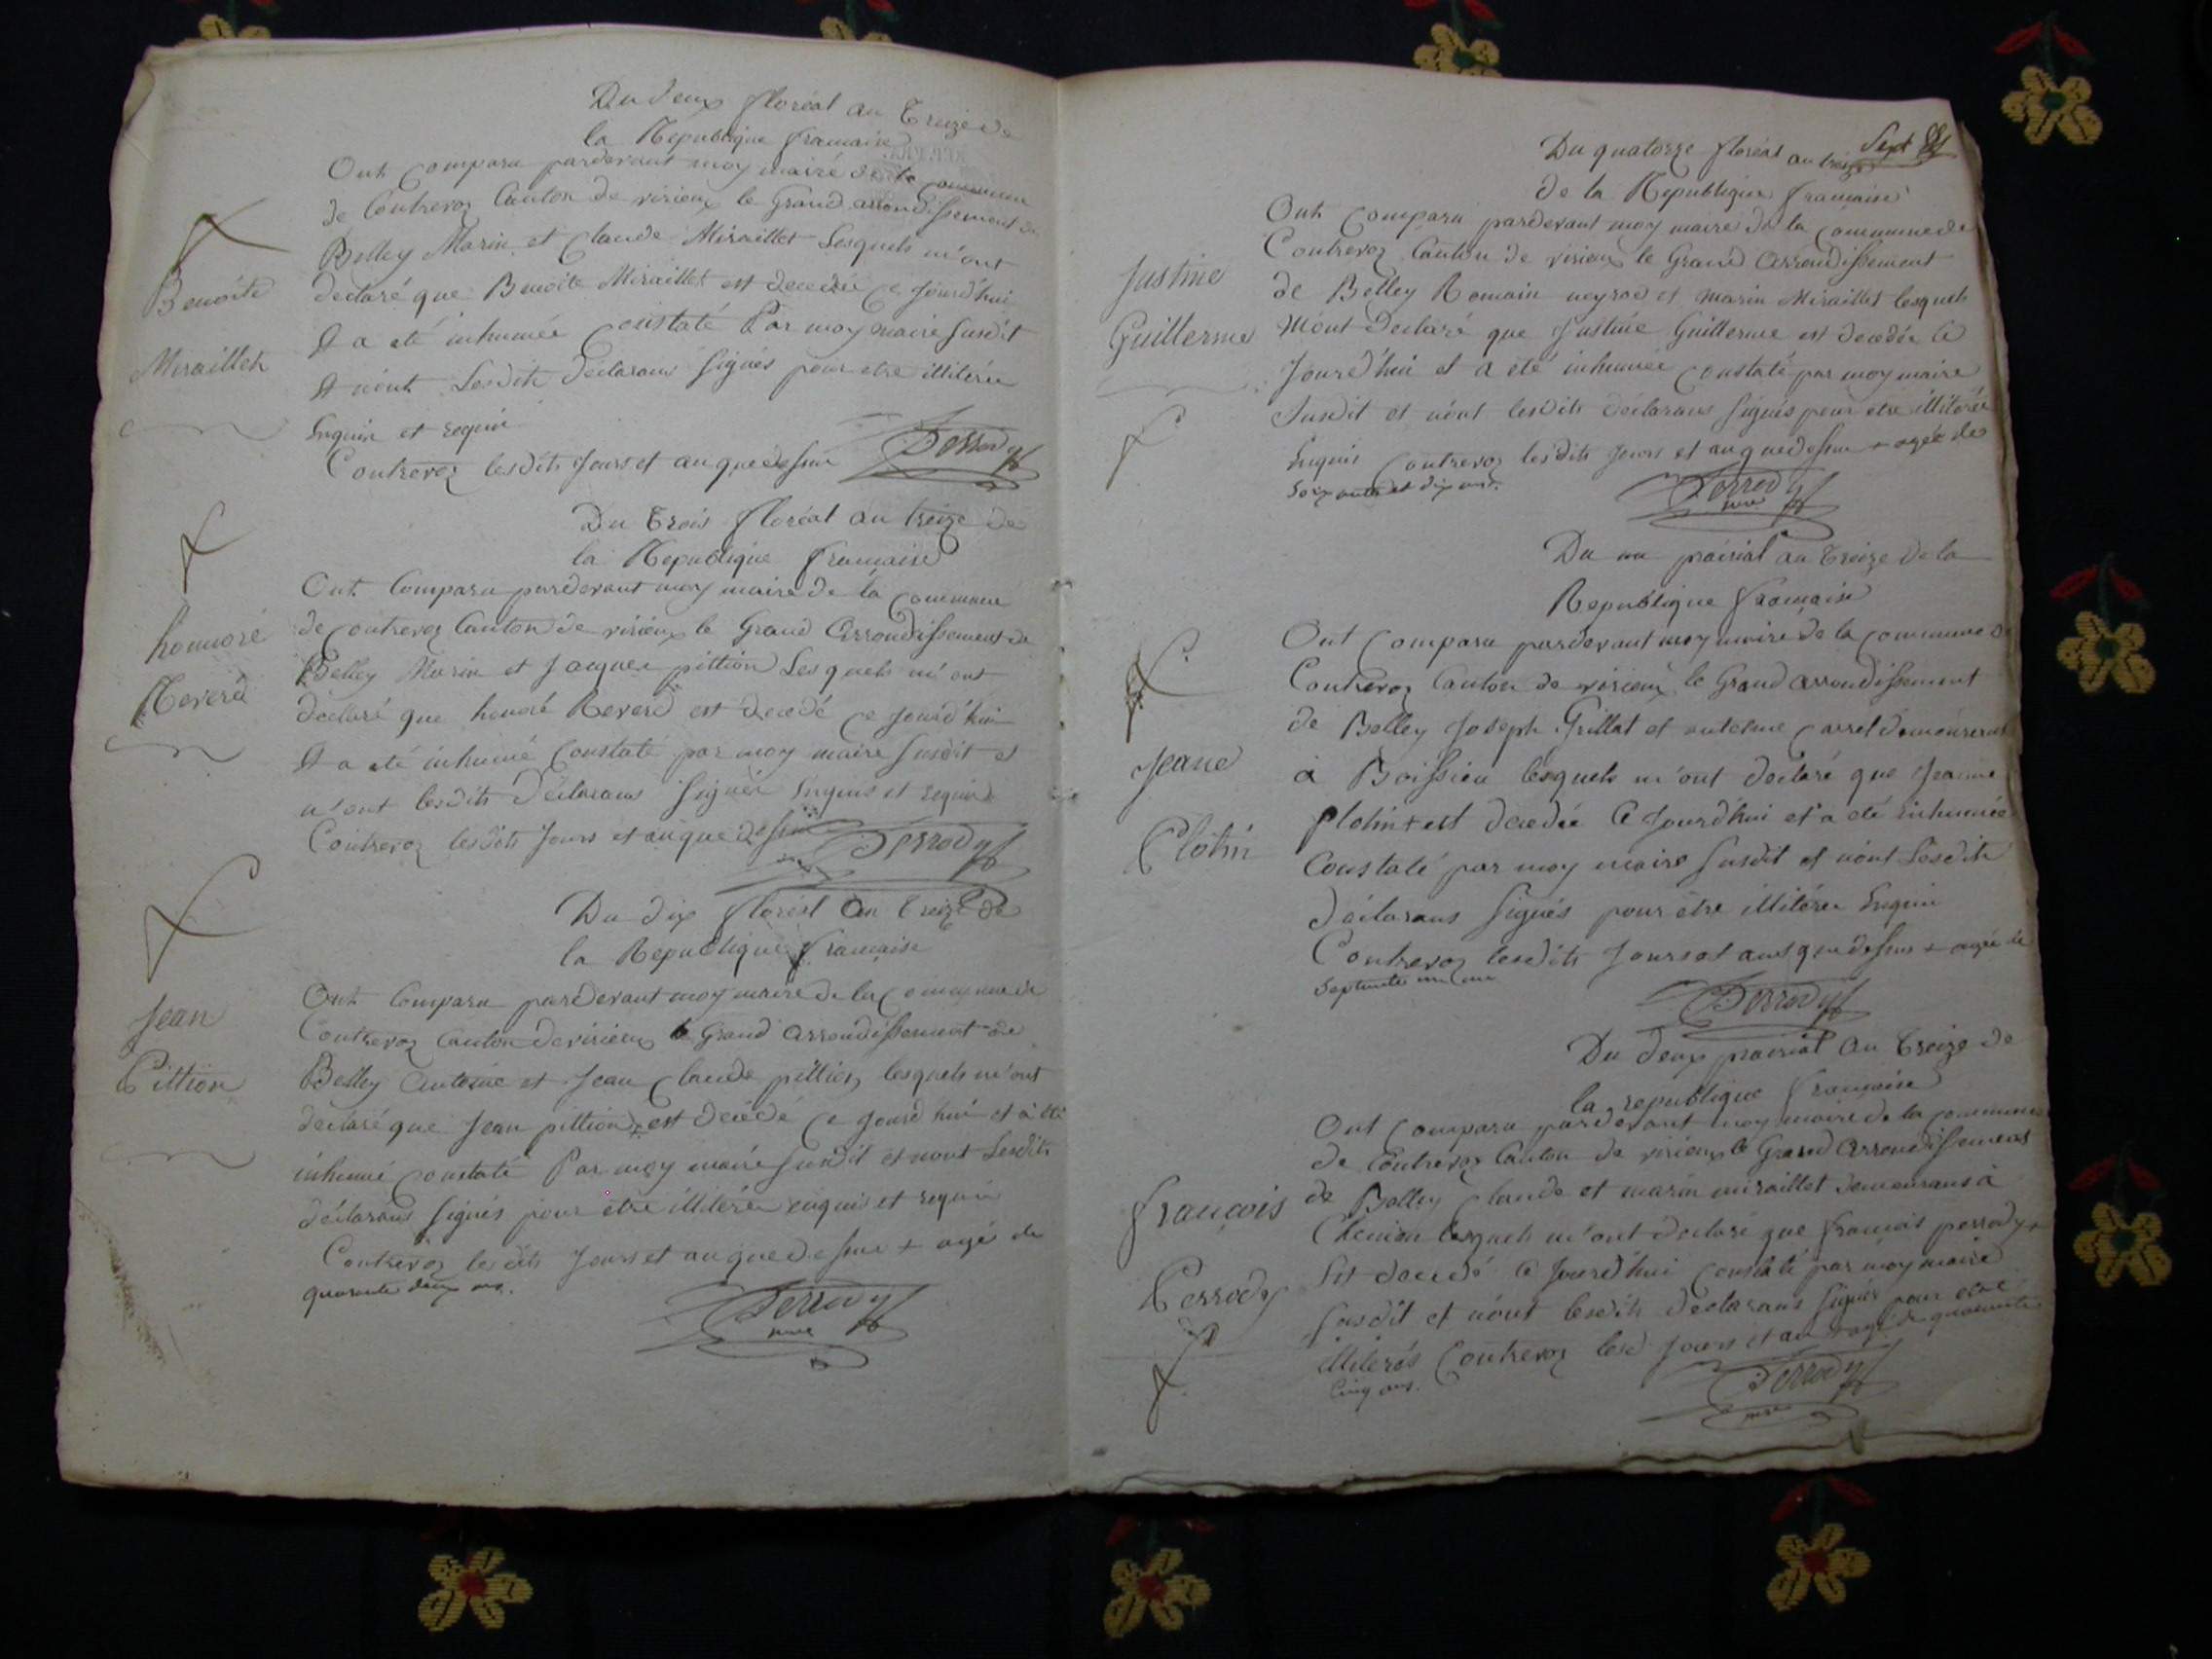 Du deux floréal an treize de
la République francaise
Ont comparu pardevant moy maire de la commune
de Contrevoz Canton de virieux le Grand arrondissement de
Belley Marin et Claude Miraillet Lesquels m'ont
declaré que Benoite Miraillet est decedée ce Jourd'hui
Benoite
Et a eté inhumée constaté Par moy maire Susdit
Miraillet
Et n'ont Lesdits declarans Signés pour etre illitérés
Enquis et requis
Contrevoz lesdits Jours et an que dessus Perrody
Du trois floréal an treize de
la Republique francaise
Ont Comparu pardevant moy maire de la commune
honnoré
de Contrevoz Canton de virieux le Grand Arrondissement de
Reverd
Belley Marin et Jacques pittion Lesquels m'ont
declaré que honoré Reverd est decedé ce Jourd'hui
Et a eté inhumé Constaté par moy maire Susdit et
n'ont lesdits declarans Signés Enquis et requis
Contrevoz lesdits Jours et an que dessus Perrody
Du dix floréal an treize de
la Republique francaise
Ont Comparu pardevant moy maire de la commune de
Jean
Contrevoz Canton de virieux le Grand arrondissement de
Pittion
Belley Antoine et Jean Claude pittion lesquels m'ont
declaré que Jean pittion + est decédé ce Jourd'hui et à eté
inhumé constaté Par moy maire Susdit et n'ont Lesdits
declarans Signés pour etre illiterés enquis et requis
Contrevoz lesdits Jours et an que dessus + agé de
quarante deux ans.
Perrody
Sept
Du quatorze floréal an treize
de la Republique francaise
Ont Comparu pardevant moy maire de la commune de
Contrevoz Canton de virieux le Grand Arrondissement
Justine
de Belley Romain neyrod et marin Miraillet lesquels
Guillerme
M'ont Declaré que Justine Guillerme est decedée ce
Jourd'hui et a eté inhumée constaté par moy maire
Susdit et n'ont lesdits declarans Signés pour etre illiterés
Enquis Contrevoz lesdits Jours et an que dessus + agée de
Soixante et dix ans.
Perrody
Du un prairial an treize de la
Republique francaise
Ont Comparu pardevant moy maire de la commune de
Contrevoz Canton de virieux le Grand arrondissement
de Belley Joseph Grillat et antoine carrel demeurant
Jeane
à Boissieu lesquels m'ont declaré que Jeanne
Plotin
plotin + est decedée ce Jourd'hui et a eté inhumée
Constaté par moy maire Susdit et n'ont Lesdits
declarans Signés pour etre illitérés Enquis
Contrevoz lesdits Jours et ans que dessus + agée de
Septante un ans
Perrody
Du deux prairial an treize de
la republique francaise
Ont Comparu pardevant moy maire de la commune
de Contrevoz Canton de virieux le Grand Arrondissement
François
de Belley Claude et marin miraillet demeurans à
lesquels m'ont declaré que francois perrody +
Perrody
Est decedé ce Jourd'hui constaté par moy maire
Susdit et n'ont lesdits declarans Signés pour etre
illiterés Contrevoz lesd Jours et an + agé de quarante
Cinq ans.
Perrody